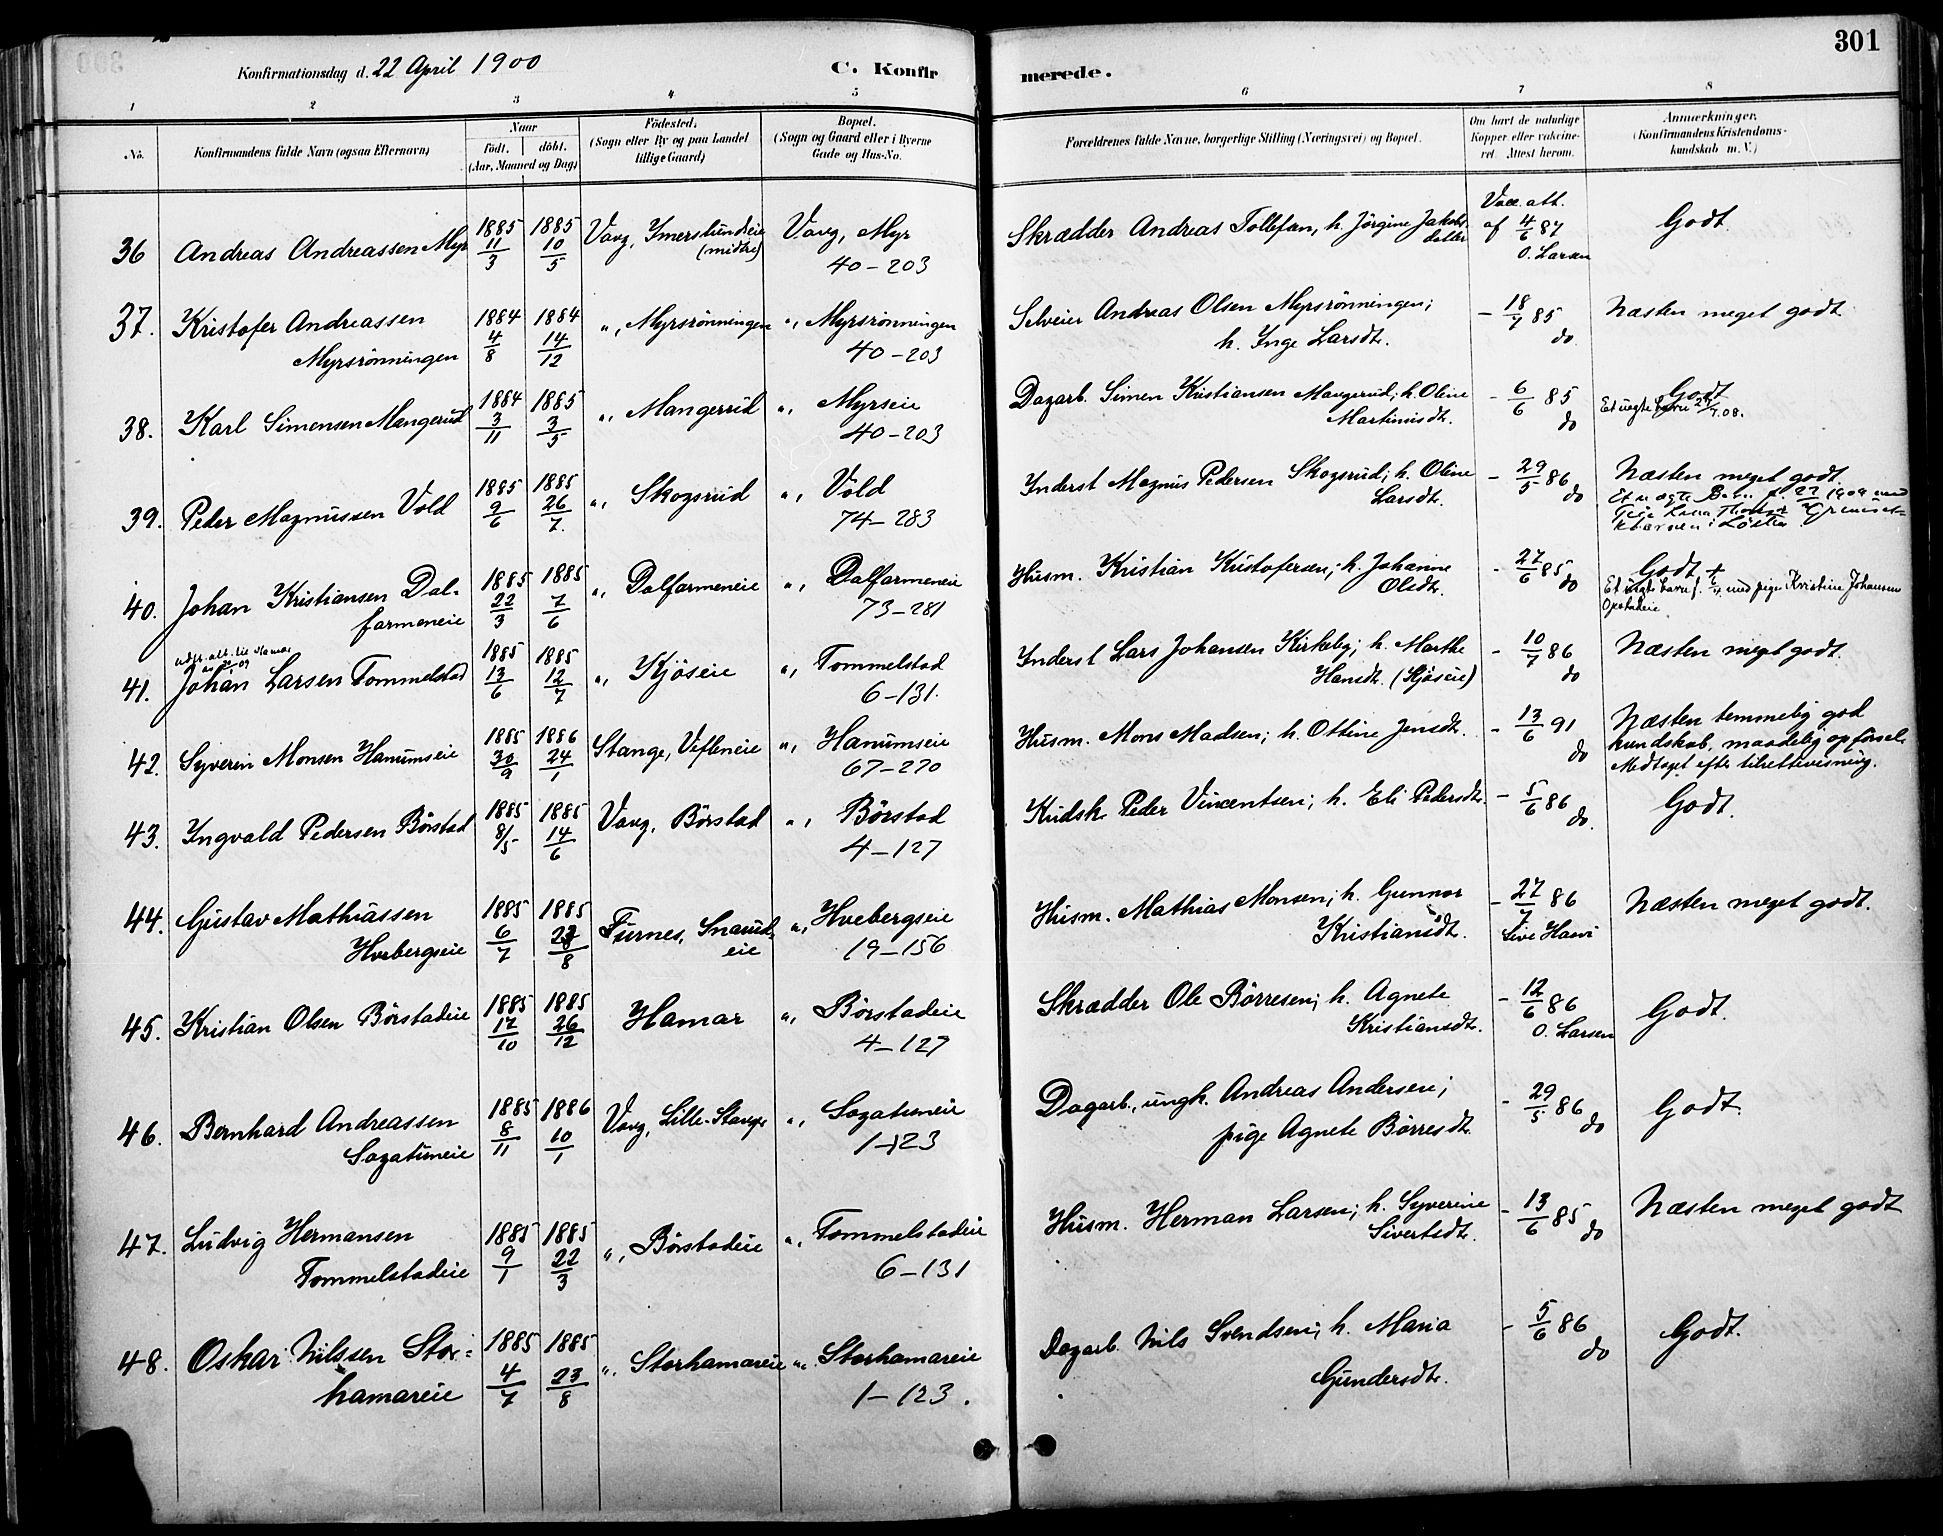 301
Konfirmationsdag d. 22 April 1900
C. Konfirmerede.
1 2 3 4 5 6 7 8
No. Konfirmandens fulde Navn (ogsaa Efternavn)
Naar födt. döbt. (Aar, Maaned og Dag)
Födested. (Sogn eller By og paa Landet tillige Gaard)
Bopæl. (Sogn og Gaard eller i Byerne Gade og Hus-No.
Forældrenes fulde Navne, borgerlige Stilling (Næringsvei) og Bopæl.
Om havt de naturlige Kopper eller vakcineret. Attest herom.
Anmerkninger. (Konfirmandens Kristendomskundskab m. V.)
36 Andreas Andreassen Myr 1885 11/3 1885 10/5 Vang, Imerslundeie (midtre) Vang, Myr 40-203 Skrædder Andreas Tollefsn, h. Jörgine Jakobsdatter Vacc. att. af 4/6 87 O. Larsen Godt
37. Kristofer Andreassen Myrsrönningen 1884 4/8 1884 14/12 ", Myrsrönningen ", Myrsrönningen 40-203 Selveier Andreas Olsen Myrsrönningen; h. Inge Larsdt. - 18/7 85 do. Næsten meget godt
38. Karl Simensen Mangerud 1884 3/11 1885 3/5 ", Mangerud ", Myrseie 40-203 Dagarb. Simen Kristiansen Mangerud; h. Oline Martinusdt. - 6/6 85 do Godt Et uegte barn 08.
39. Peder Magnussen Vold 1885 9/6 1885 26/7. ", Skogsrud ", Vold 74-283 Inderst Magnus Pedersen Skogsrud; h. Oline Larsdt. - 29/5 86 do Næsten meget godt. Et uegte 1909 med i Löiten
40. Johan Kristiansen Dalfarmeneie 1885 22/3 1885 7/6 ", Dalfarmeneie ", Dalfarmeneie 73-281 Husm. Kristian Kristofersen; h. Johanne Olsdt. - 27/6 85 do Godt + Et uegte barn f. med pige Kristine Johansen
41. Johan Larsen Tommelstad 1885 13/6 1885 12/7 ", Kjöseie ", Tommelstad 6-131. Inderst Lars Johansen Kirkeby; h. Marthe Hansdt. (Kjöseie) - 10/7 86 do Næsten meget godt.
42. Syverin Monsen Hanumseie 1885 30/9 1886 24/1 Stange, Vefleneie ", Hanumseie 67-270 Husm. Mons Madsen; h. Ottine Jensdt. - 13/6 91 do Næsten temmelig god kundskab, maadelig opförsel. Medtaget efter tilrettevisning.
43. Ingvald Pedersen Börstad 1885 8/5 1885 14/6 Vang, Börstad ", Börstad 4-127 Kudsk Peder Vincentsen; h. Eli Pedersdt. - 5/6 86 do. Godt.
44. Gustav Mathiassen Hvebergseie 1885 6/7 1885 23/8 Furnes, Snarudeie ", Hvebergseie 19-156 Husm. Mathias Monsen; h. Gunnor Kristiansdt. - 27/7 86 Næsten meget godt.
45. Kristian Olsen Börstadeie 1885 17/10 1885 26/12 Hamar ", Börstadeie 4-127 Skrædder Ole Börresen; h. Agnete Kristiansdt. - 12/6 86 O. Larsen Godt.
46. Bernhard Andreassen Sagatuneie 1885 8/11 1886 10/1 Vang, Lille-Stange ", Sagatuneie 1-123 Dagarb., ungk. Andreas Andersen; pige Agnete Börresdt. - 29/5 86 do Godt.
47. Ludvig Hermansen Tommelstadeie 1885 9/1 1885 22/3 ", Börstadeie ", Tommelstadeie 6-131 Husm. Herman Larsen; h. Syverine Sivertsdt. - 13/6 85 do Næsten meget godt
48. Oskar Nilssen Storhamareie 1885 4/7 1885 23/8 ", Storhamareie ", Storhamareie 1-123. Dagarb. Nils Svendsen; h. Maria Gundersdt. - 5/6 86 do Godt.